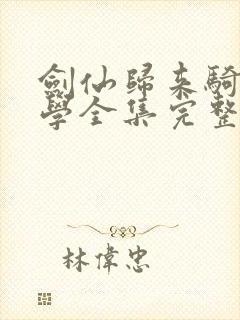 劍仙歸來騎
學全集完整
林偉忠